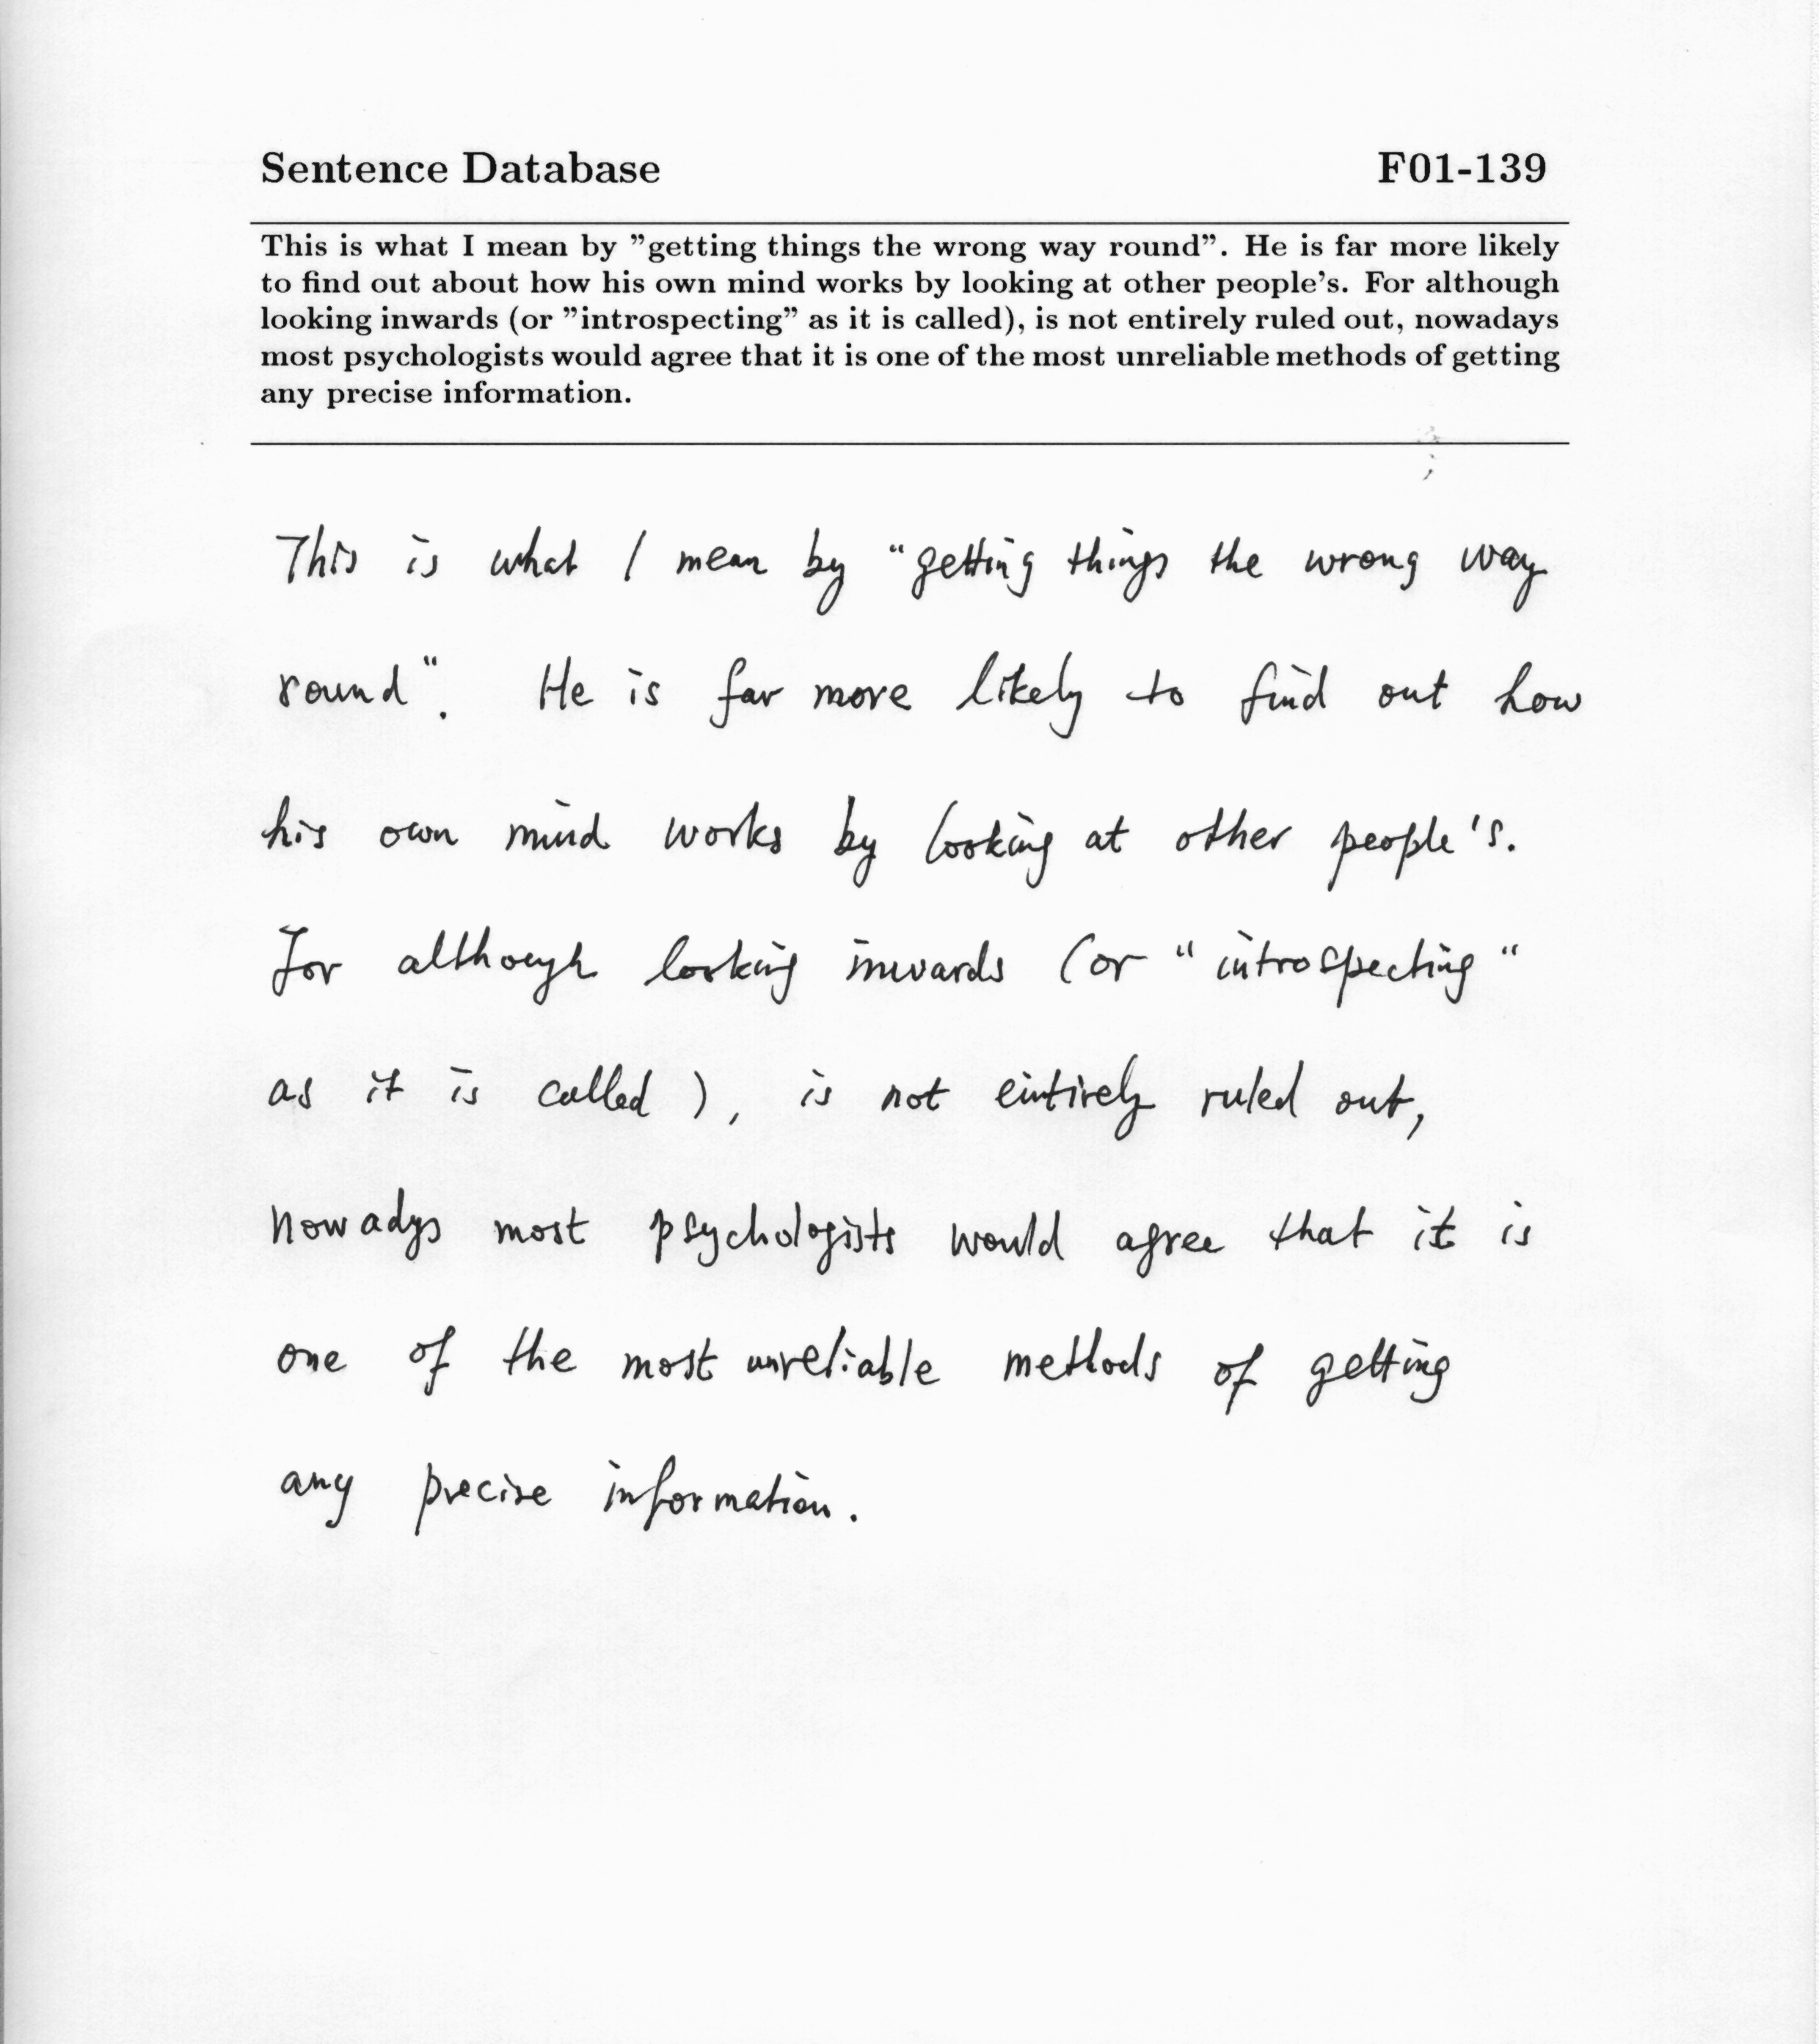 Sentence Database F01-139
This is what I mean by ”getting things the wrong way round”. He is far more likely
to find out about how his own mind works by looking at other people's. For although
looking inwards (or ”introspecting” as it is called), is not entirely ruled out, nowadays
most psychologists would agree that it is one of the most unreliable methods of getting
any precise information.
This is what I mean by "getting things the wrong way
round". He is far more likely to find out how
his own mind works by looking at other people's.
For although looking inwards (or "introspecting"
as it is called), is not entirely ruled out,
nowadys most psychologists would agree that it is
one of the most unreliable methods of getting
any precise information.